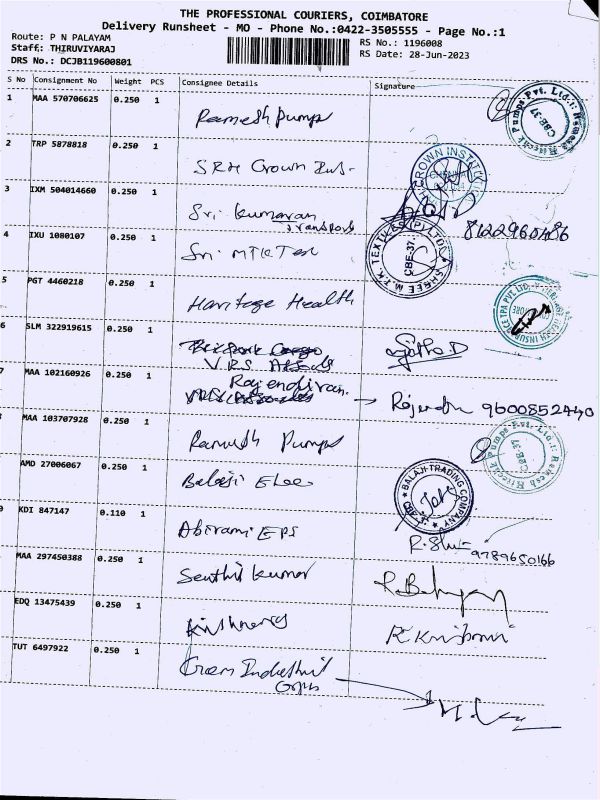 THE PROFESSIONAL COURIERS, COIMBATORE
Delivery Runsheet - MO - Phone No.:0422-3505555 - Page No.:1
Route: P N PALAYAM
Staff: THIRUVIYARAJ
DRS No.: DCJB119600801
RS No.: 1196008
RS Date: 28-Jun-2023
S No Consignment No Weight PCS Consignee Details Signature
1 MAA 570706625 0.250 1
Ramesh Pumps
2 TRP 5878818 0.250 1
SRM Crown
3 IXM 504014660 0.250 1
Sri Kumaran
Transport
8122960486
4 IXU 1080107 0.250 1
Sri MTK Tex
5 PGT 4460218 0.250 1
Haritege Health
6 SLM 322919615 0.250 1
V.R.S
7 MAA 102160926 0.250 1
Rajendiran
9600852440
MAA 103707928 0.250 1
Ramesh Pumps
AMD 27006067 0.250 1
Balaji Elec
BALAJI TRADING COMPANY
KDI 847147 0.110 1
Abirami EPS
9789650166
MAA 297450388 0.250 1
Senthil Kumar
EDQ 13475439 0.250 1
TUT 6497922 0.250 1
Green Industrial